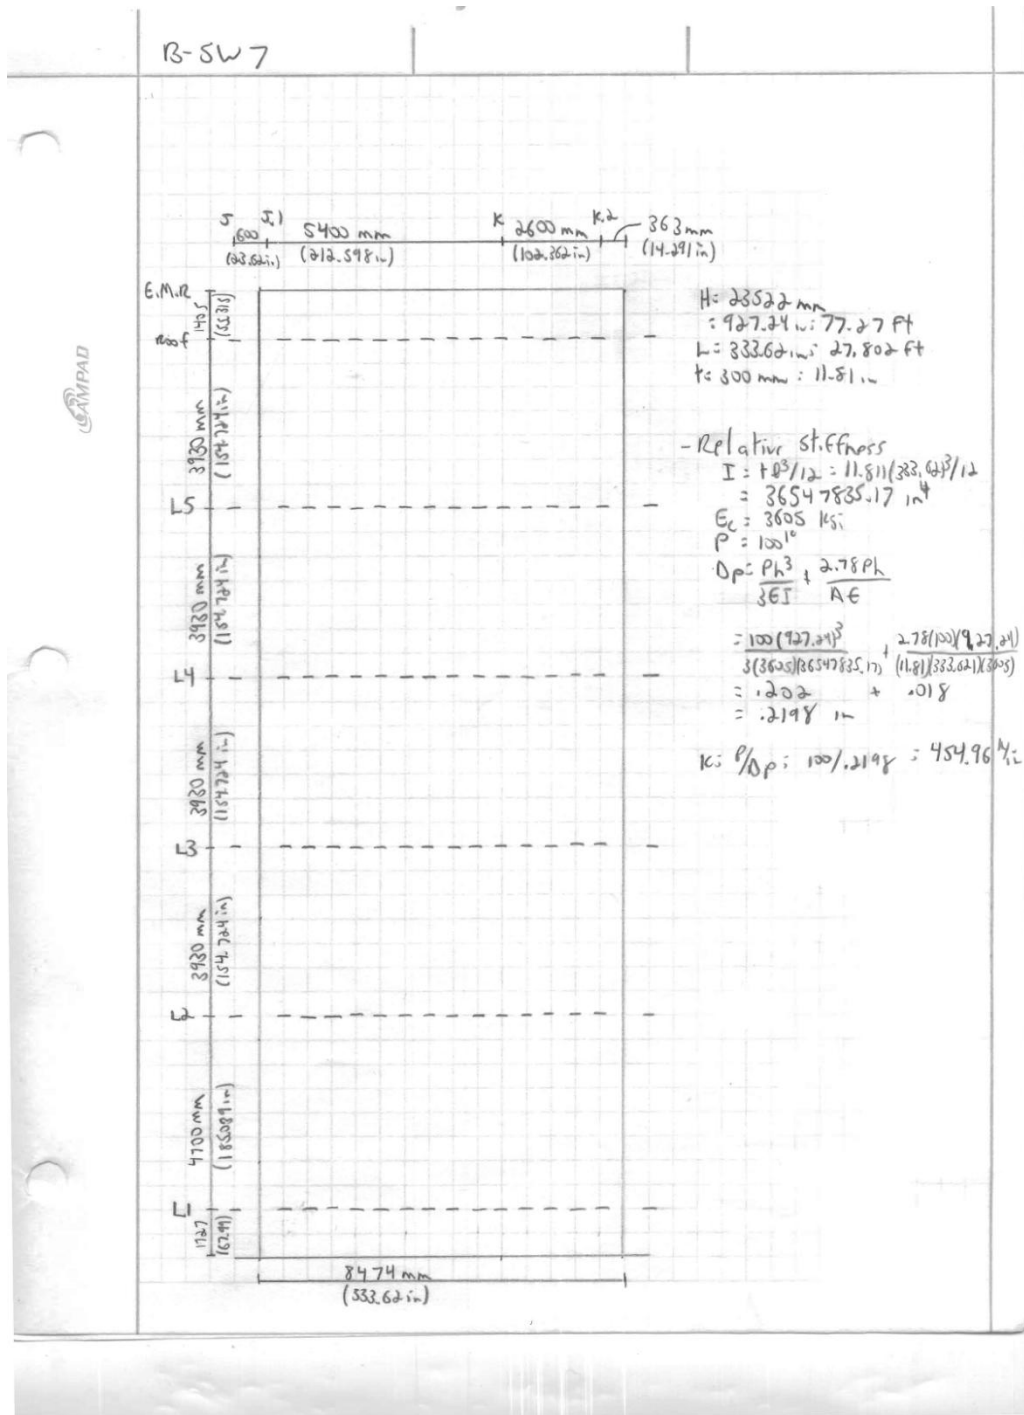 B-SW7
J J.1 K K.2
600 5400 mm 2600 mm 363 mm
(23.62in.) (212.598in) (102.362in) (14.291in)
E.M.R
1405
(55.315)
Roof
3930 mm
(154.724in)
L5
3930 mm
(154.724in)
L4
3930 mm
(154.724in)
L3
3930 mm
(154.724in)
L2
4700mm
(185.039in)
L1
8474 mm
(333.62in)
H= 23522 mm
= 927.24 in = 77.27 ft
L= 333.62 in = 27.802 ft
t= 300 mm = 11.81 in
- Relative Stiffness
I = tl³/12 = 11.811(333.62)³/12
= 36547835.17 in⁴
Ec = 3605 Ksi
P = 100ᵏ
Δp= Ph³/3EI + 2.78Ph/AE
= 100(927.24)³/3(3605)(36547835.17) + 2.78(100)(927.24)/(11.81)(333.621)(3605)
= .202 + .018
= .2198 in
K= P/Δp = 100/.2198 = 454.96 k/in
AMPAD